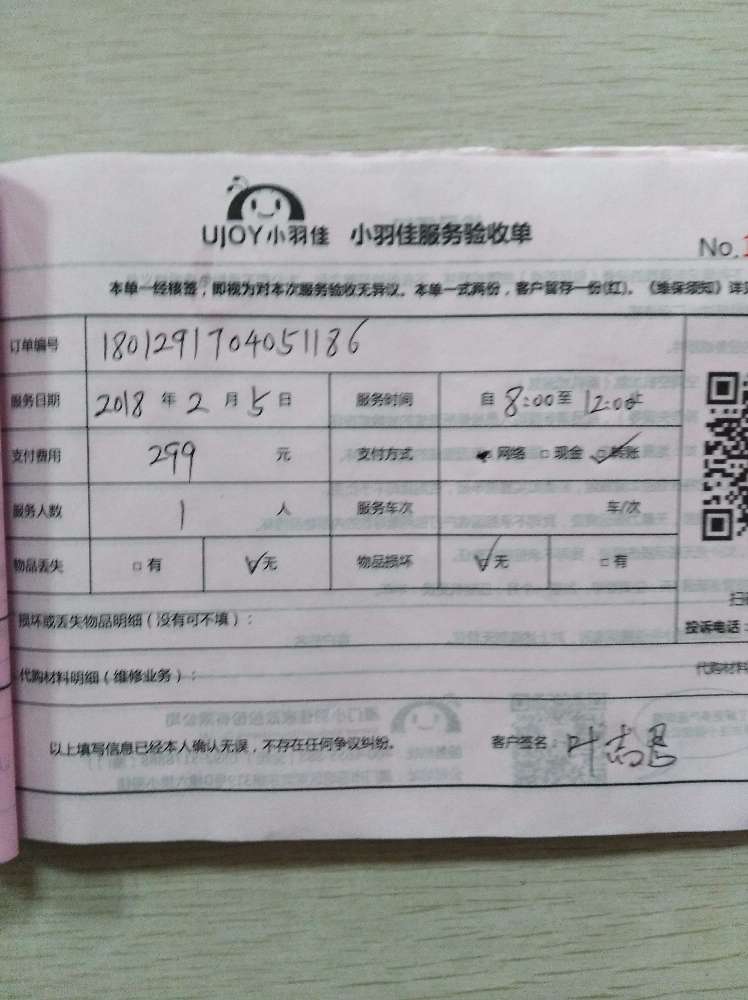 UJOY小羽佳 小羽佳服务验收单
No.
本单一经核签，即视为对本次服务验收无异议。本单一式两份，客户留存一份(红)。《维保须知》详见
订单编号 1801291704051186
服务日期 2018 年 2 月 5 日 服务时间 自 8:00 至 12:00 止
支付费用 299 元 支付方式 网络 □ 现金 ☑ 转账
服务人数 1 人 服务车次 车/次
物品丢失 □ 有 ☑ 无 物品损坏 ☑ 无 □ 有
损坏或丢失物品明细（没有可不填）：
投诉电话：
代购材料明细（维修业务）：
代购材料
以上填写信息已经本人确认无误，不存在任何争议纠纷。 客户签名：叶志